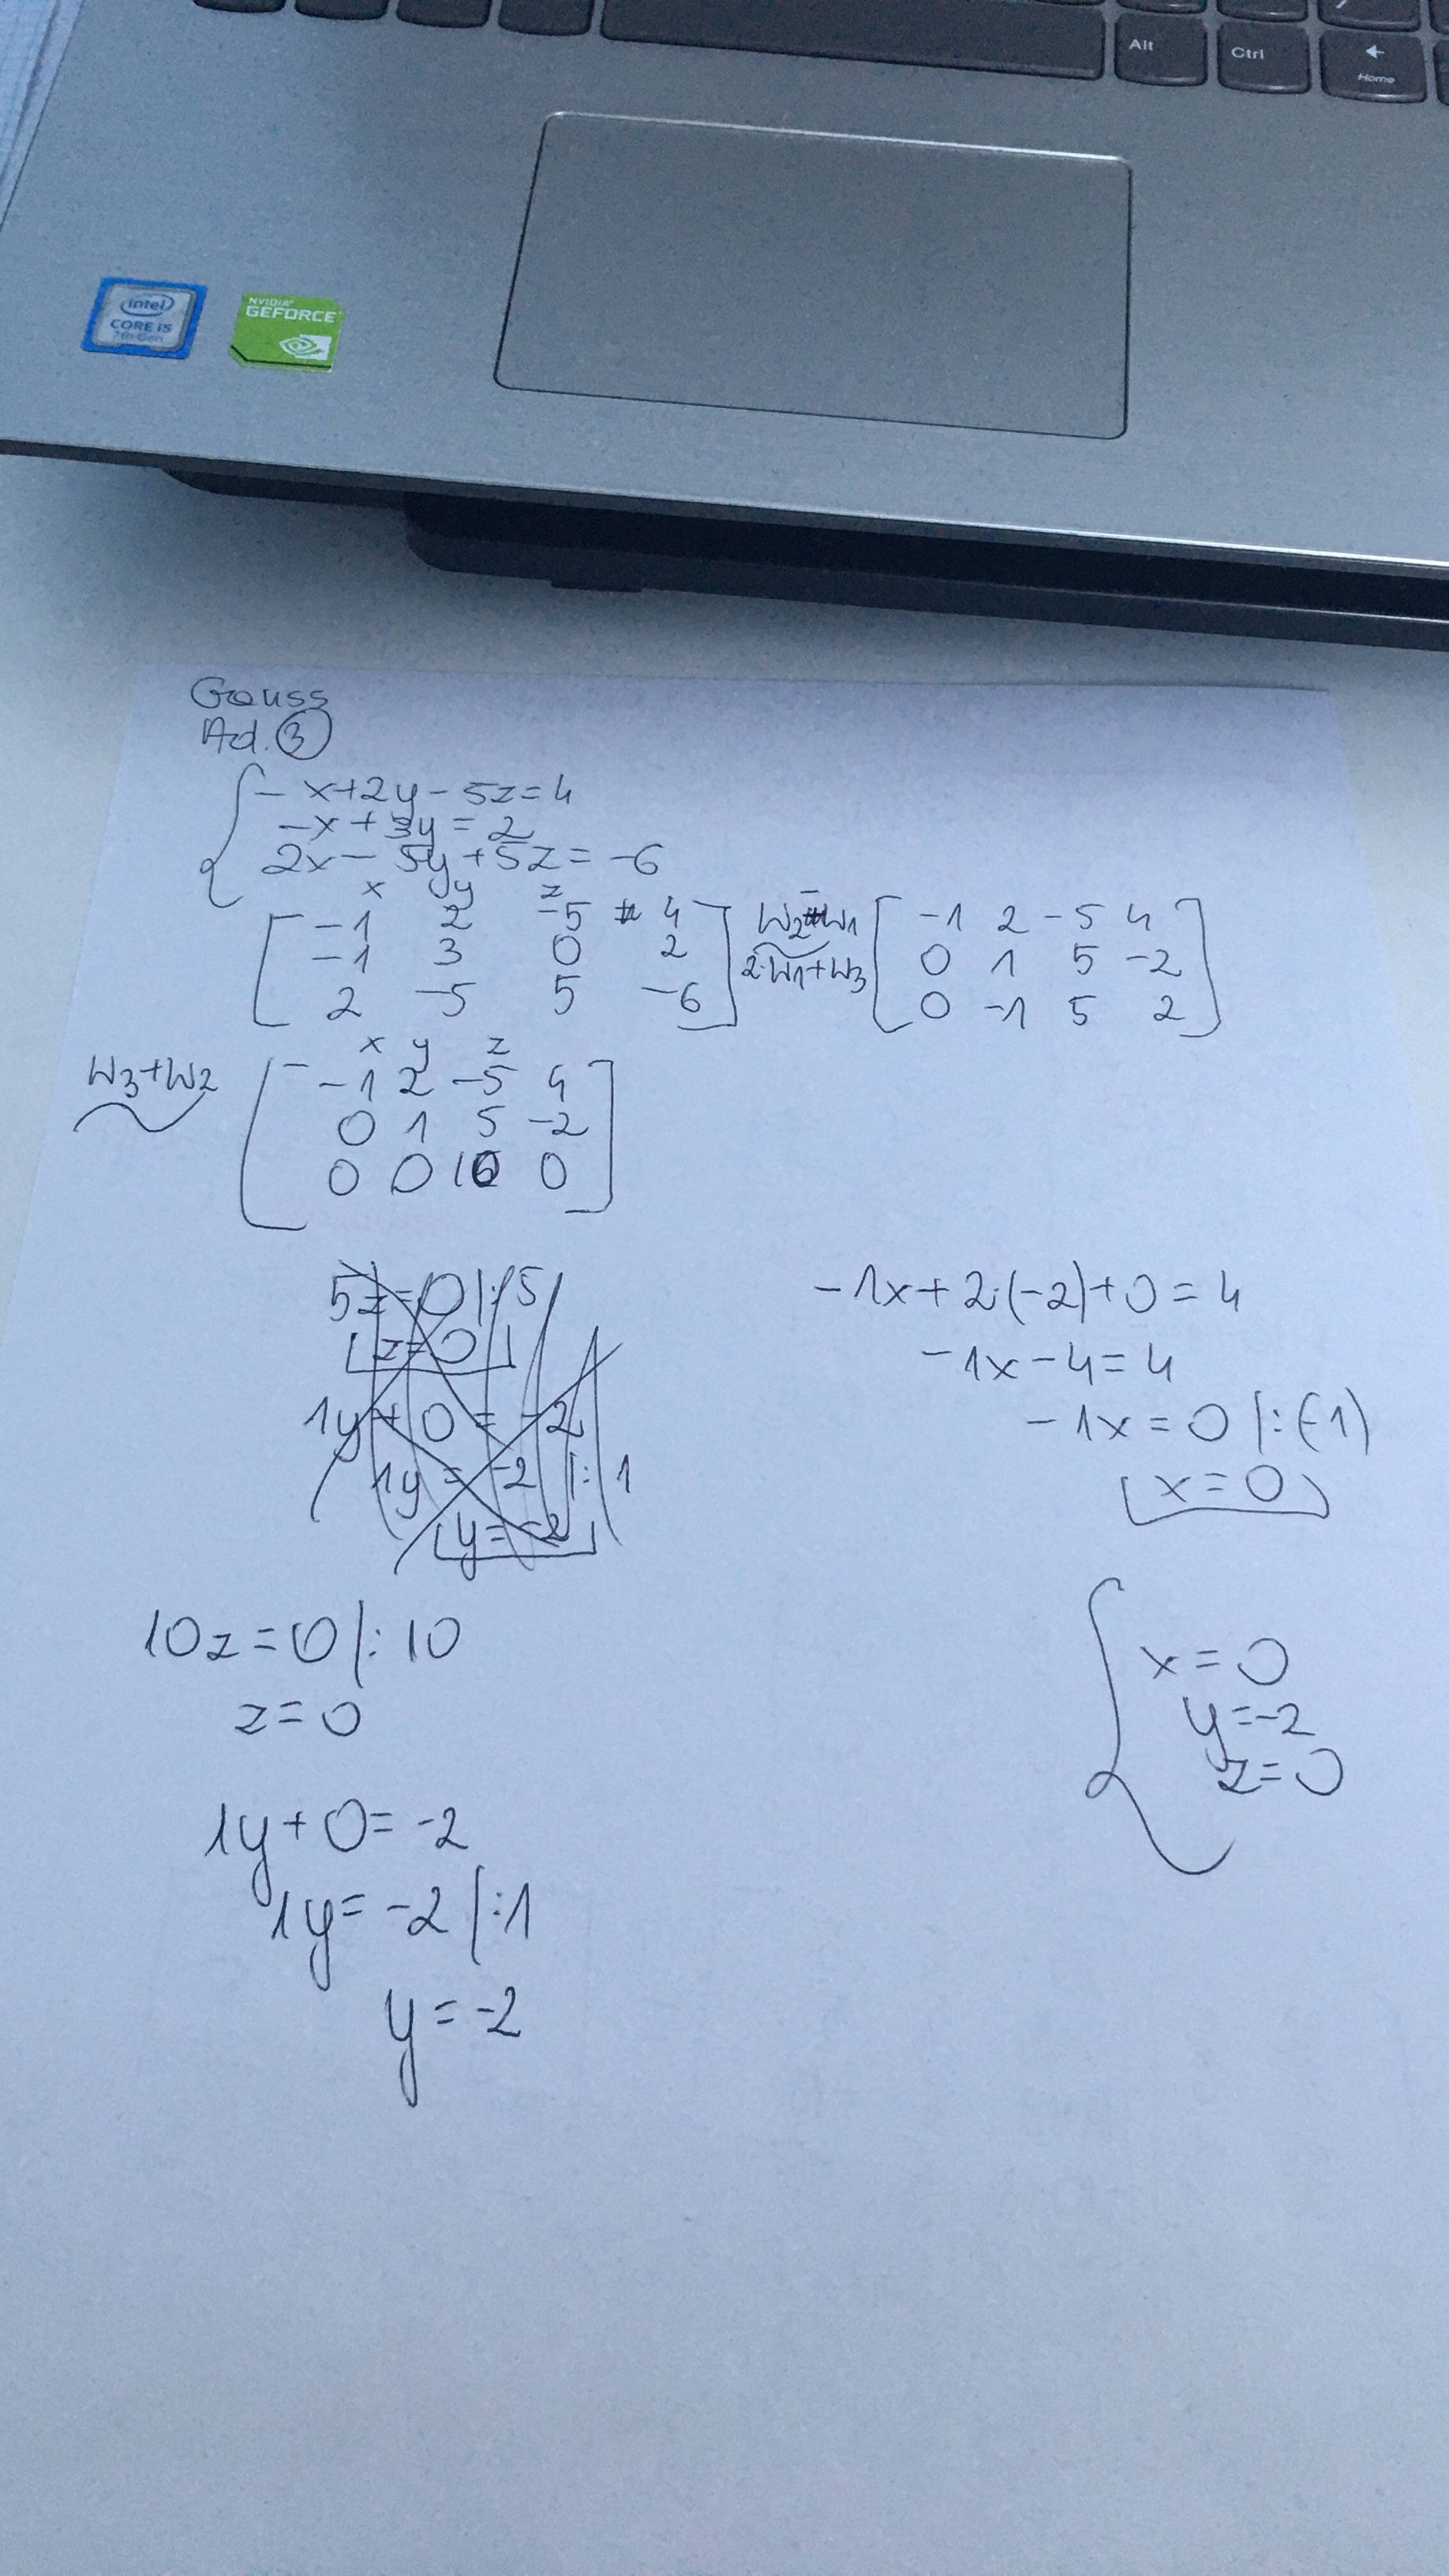 Alt Ctrl ←
Home
intel
CORE i5
7th Gen
NVIDIA
GEFORCE
Gauss
Ad. 3
- x+2y- 5z=4
-x+3y=2
2x- 5y+5z=-6
x y z
-1 2 -5 4
-1 3 0 2
2 -5 5 -6
W2-W1
2·W1+W3
-1 2 -5 4
0 1 5 -2
0 -1 5 2
W3+W2
x y z
-1 2 -5 4
0 1 5 -2
0 0 10 0
5z=0|:5
z=0
1y+0=-2
1y=-2|:1
y=-2
10z=0|:10
z=0
1y+0=-2
1y=-2|:1
y=-2
-1x+2·(-2)+0=4
-1x-4=4
-1x=0|:(-1)
x=0
x=0
y=-2
z=0